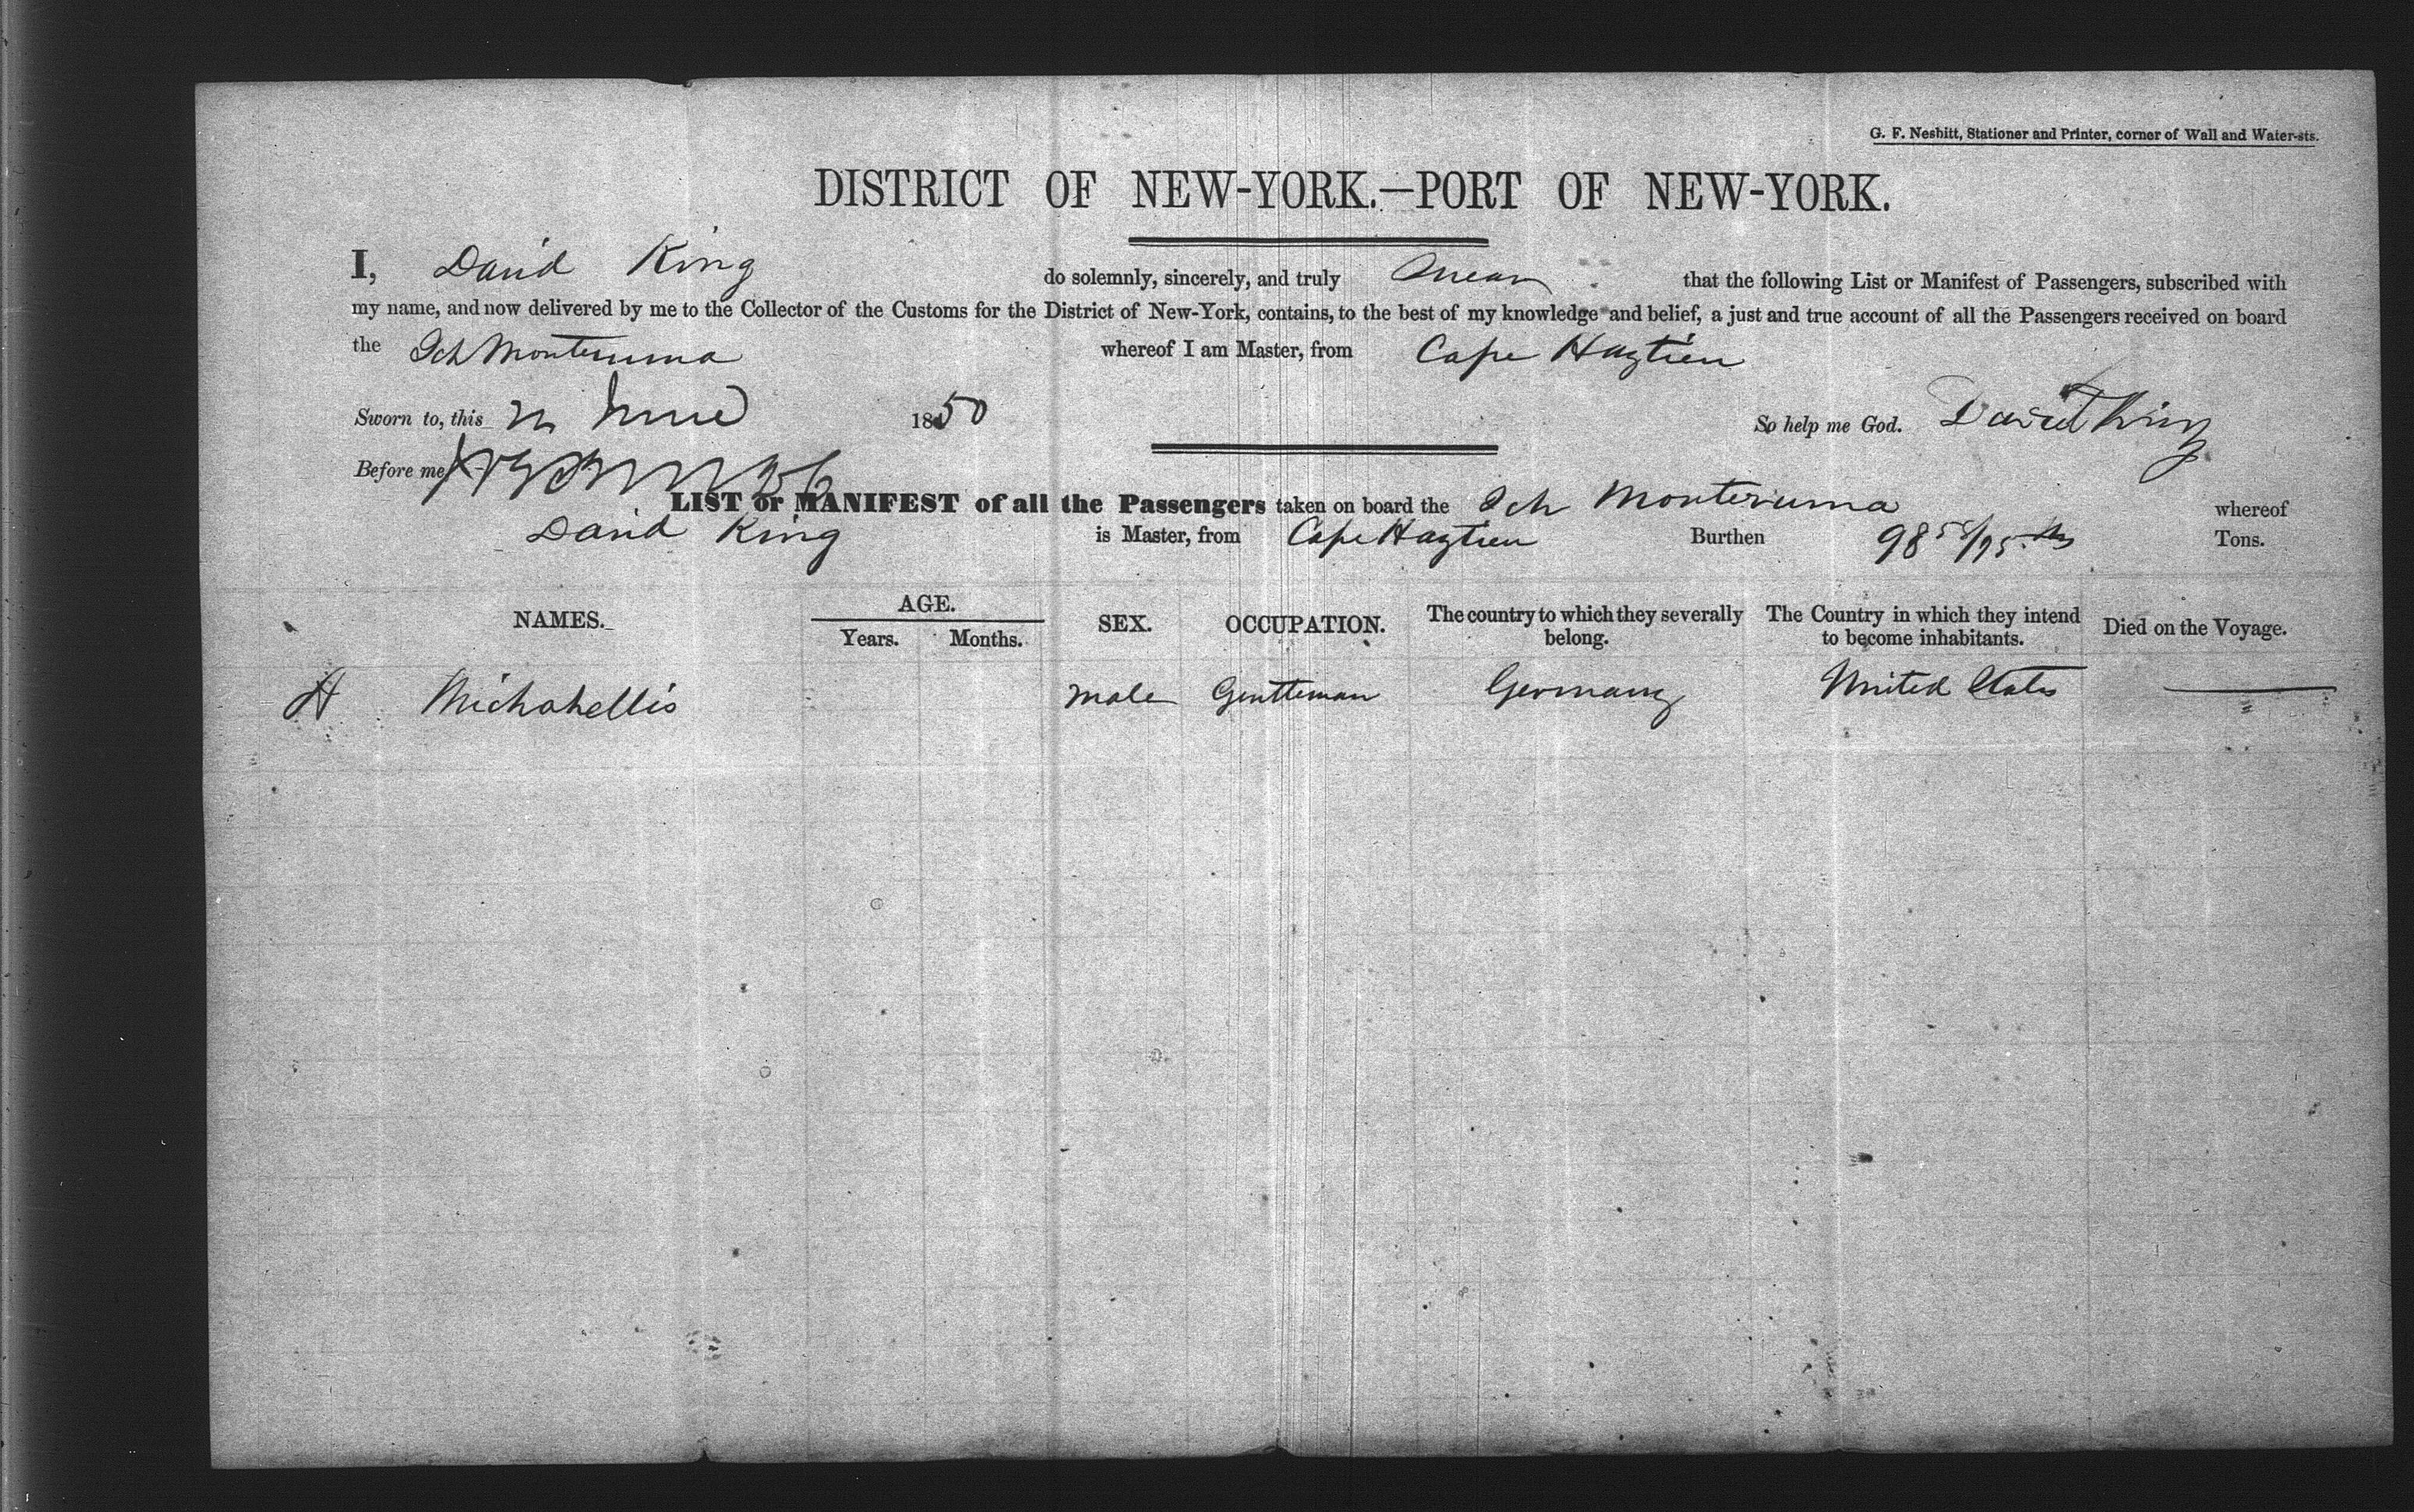 G. F. Nesbitt, Stationer and Printer, corner of Wall and Water-sts.
DISTRICT OF NEW-YORK.—PORT OF NEW-YORK.
I, David King do solemnly, sincerely, and truly Swear that the following List or Manifest of Passengers, subscribed with
my name, and now delivered by me to the Collector of the Customs for the District of New-York, contains, to the best of my knowledge and belief, a just and true account of all the Passengers received on board
the Sch Montezuma whereof I am Master, from Cape Haytien
Sworn to, this June 1850 So help me God. David King
Before me
LIST or MANIFEST of all the Passengers taken on board the Sch Montezuma whereof
David King is Master, from Cape Haytien Burthen 98 Tons.
NAMES. AGE. SEX. OCCUPATION. The country to which they severally belong. The Country in which they intend to become inhabitants. Died on the Voyage.
Years. Months.
H Michahellis male Gentleman Germany United States